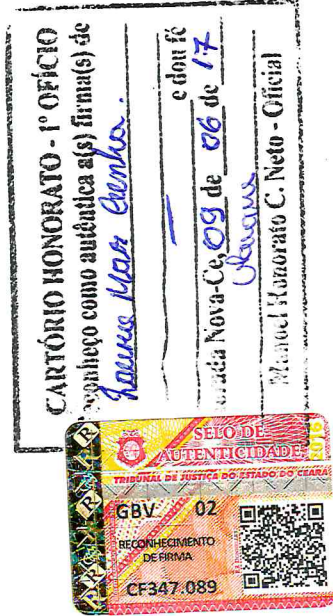 CARTÓRIO HONORATO - 1º OFÍCIO
conheço como autêntica a(s) firma(s) de
e dou fé
orada Nova-Ce, 09 de 06 de 17
Manoel Honorato C. Neto - Oficial
SELO DE
AUTENTICIDADE
2016
TRIBUNAL DE JUSTIÇA DO ESTADO DO CEARÁ
GBV 02
RECONHECIMENTO
DE FIRMA
CF347.089